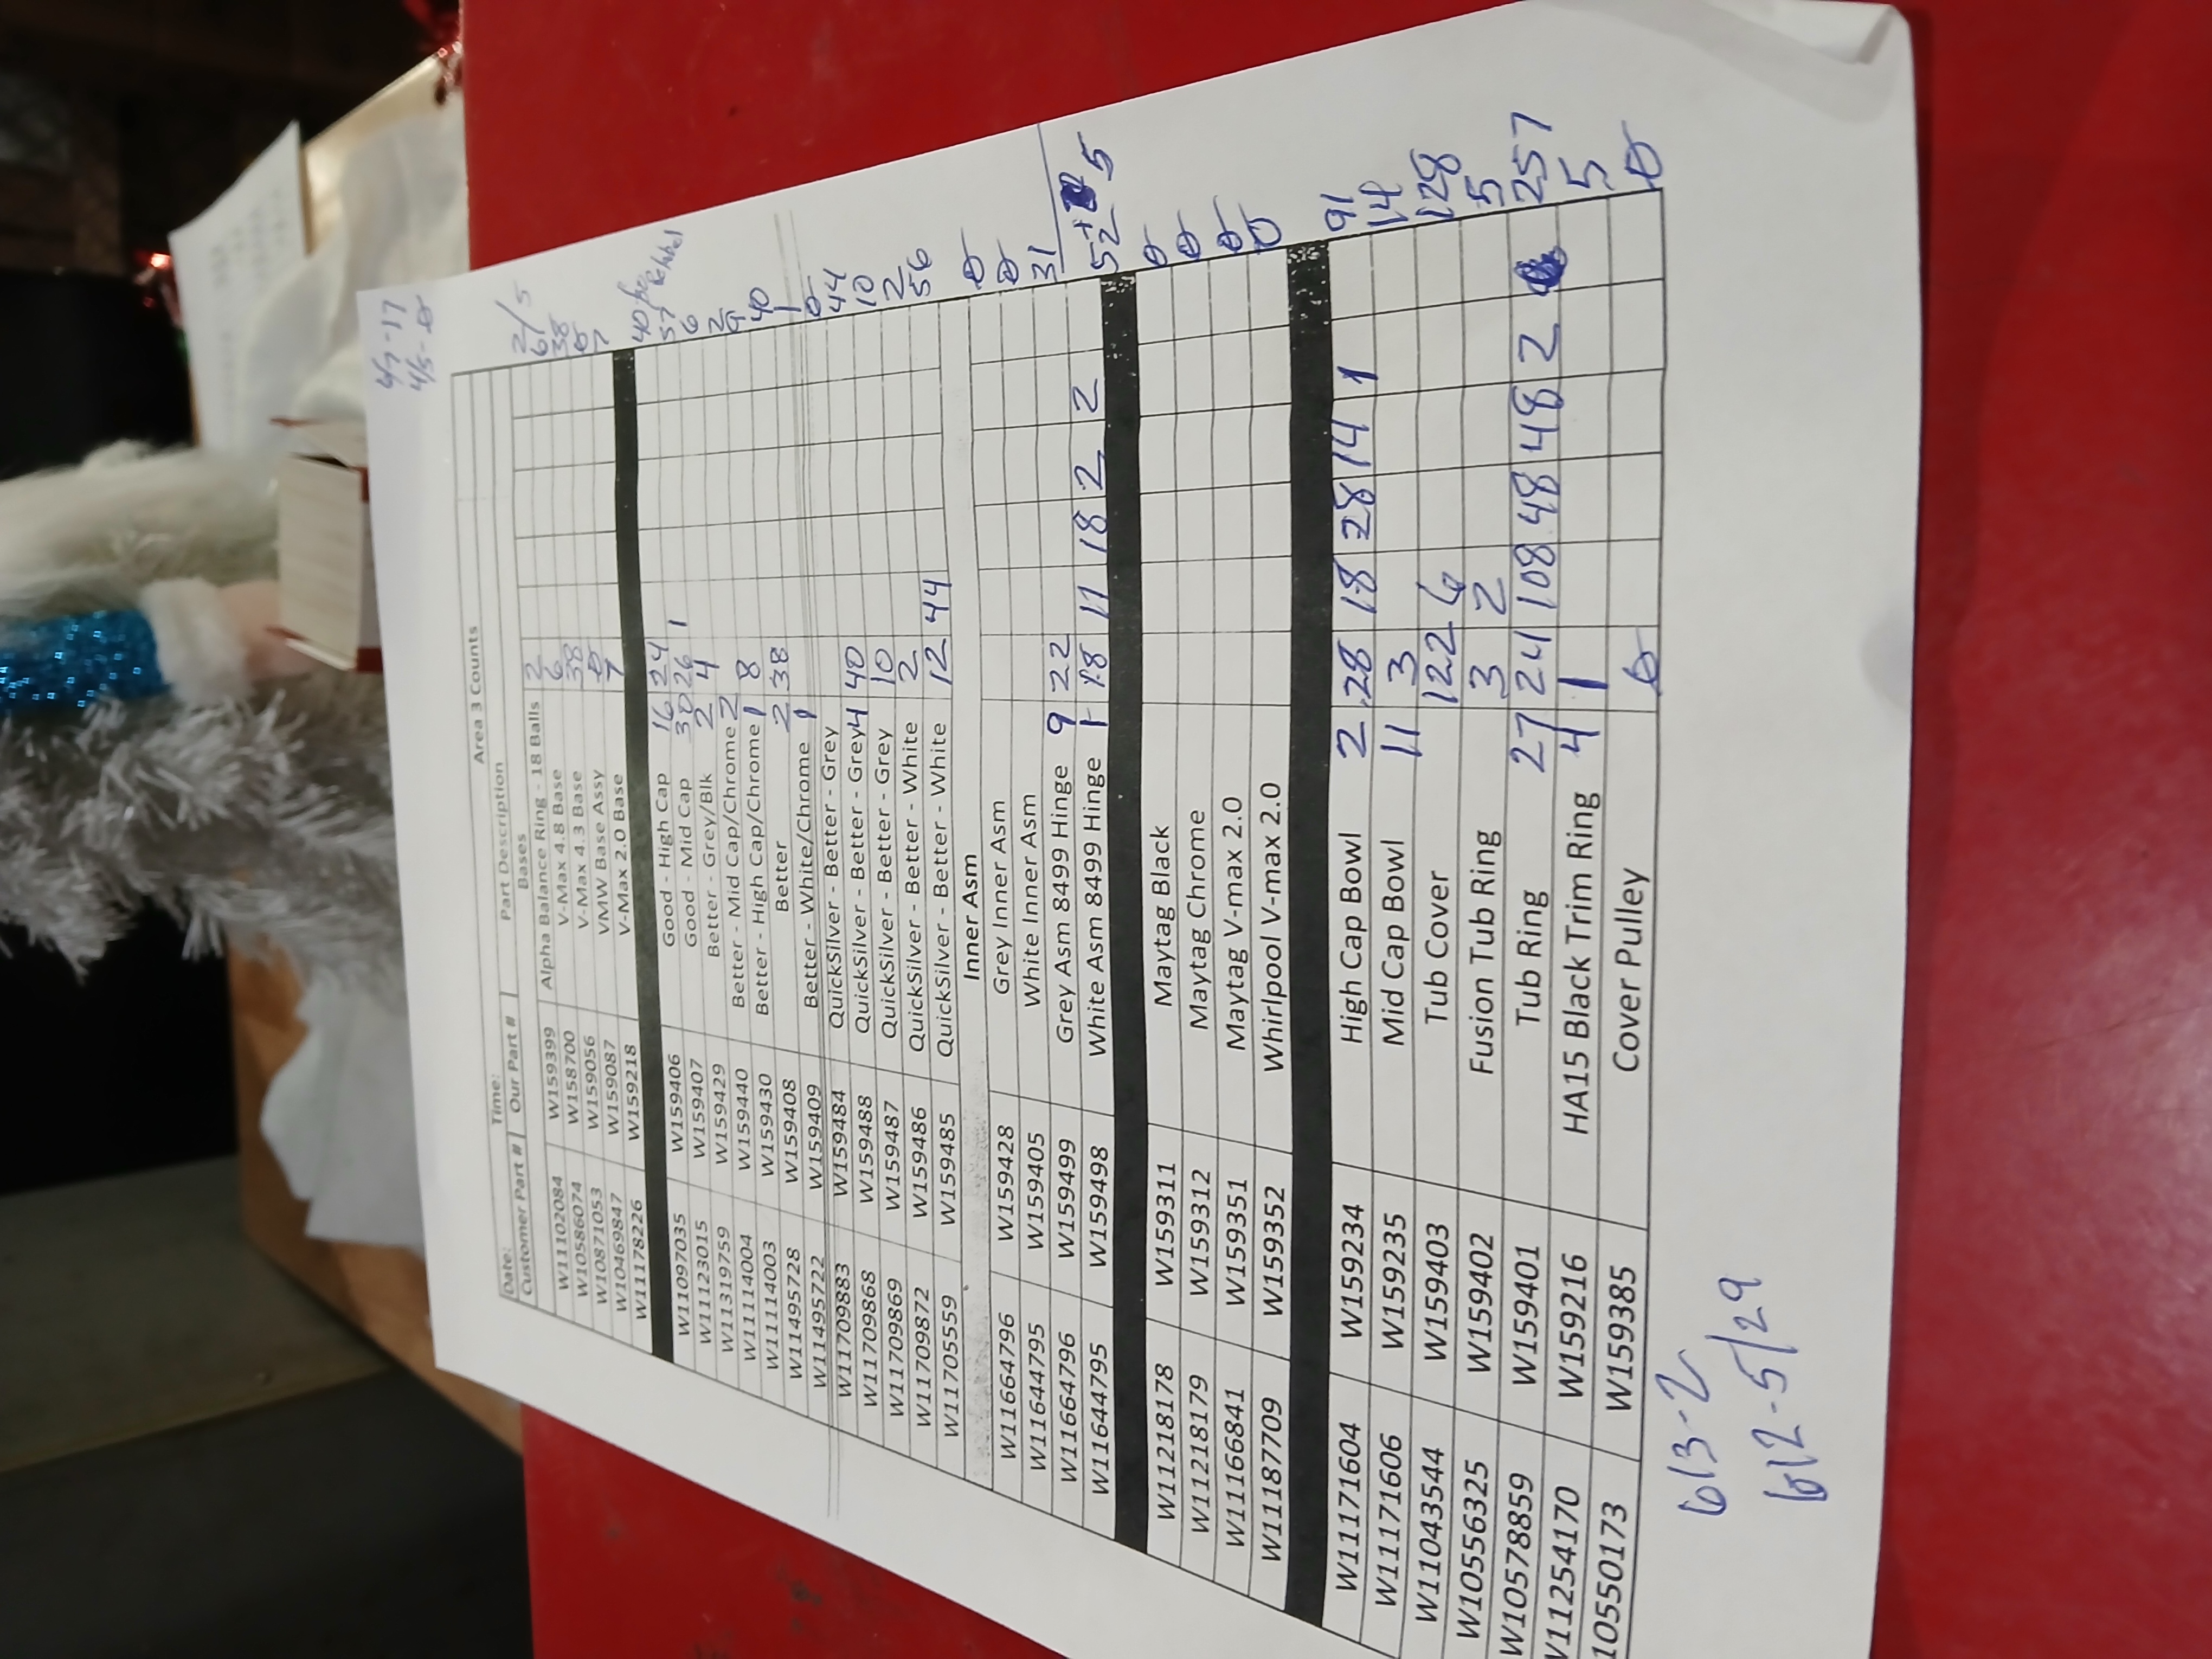 4/7-17
4/5-0
Area 3 Counts
Date: Time:
Customer Part # Our Part # Part Description
Bases
W11102084 W159399 Alpha Balance Ring - 18 Balls 2 2/5
W10586074 W158700 V-Max 4.8 Base 6 6
W10871053 W159056 V-Max 4.3 Base 38 38
W10469847 W159087 VMW Base Assy 0 0
W11178226 W159218 V-Max 2.0 Base 7 7
W11097035 W159406 Good - High Cap 16 24 40
W11123015 W159407 Good - Mid Cap 30 26 1 57
W11319759 W159429 Better - Grey/Blk 2 4 6
W11114004 W159440 Better - Mid Cap/Chrome 2 2
W11114003 W159430 Better - High Cap/Chrome 1 8 9
W11495728 W159408 Better 2 38 40
W11495722 W159409 Better - White/Chrome 1 1
W11709883 W159484 QuickSilver - Better - Grey 0
W11709868 W159488 QuickSilver - Better - Grey 4 40 44
W11709869 W159487 QuickSilver - Better - Grey 10 10
W11709872 W159486 QuickSilver - Better - White 2 2
W11705559 W159485 QuickSilver - Better - White 12 44 56
Inner Asm
W11664796 W159428 Grey Inner Asm 0
W11644795 W159405 White Inner Asm 0
W11664796 W159499 Grey Asm 8499 Hinge 9 22 31
W11644795 W159498 White Asm 8499 Hinge 1 18 11 18 2 2 52+ 5
W11218178 W159311 Maytag Black 0
W11218179 W159312 Maytag Chrome 0
W11166841 W159351 Maytag V-max 2.0 0
W11187709 W159352 Whirlpool V-max 2.0 0
W11171604 W159234 High Cap Bowl 2 28 18 28 14 1 91
W11171606 W159235 Mid Cap Bowl 11 3 14
W11043544 W159403 Tub Cover 122 6 128
W10556325 W159402 Fusion Tub Ring 3 2 5
W10578859 W159401 Tub Ring 27 24 108 48 48 2 257
W11254170 W159216 HA15 Black Trim Ring 4 1 5
10550173 W159385 Cover Pulley 0 0
613-2
612-5/29